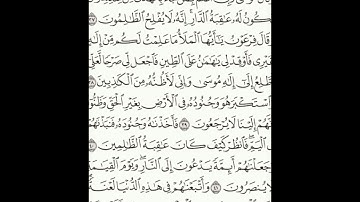 تَكُونُ لَهُۥ عَٰقِبَةُ ٱلدَّارِ ۖ إِنَّهُۥ لَا يُفْلِحُ ٱلظَّٰلِمُونَ ٣٧
وَقَالَ فِرْعَوْنُ يَٰٓأَيُّهَا ٱلْمَلَأُ مَا عَلِمْتُ لَكُم مِّنْ إِلَٰهٍ
غَيْرِى فَأَوْقِدْ لِى يَٰهَٰمَٰنُ عَلَى ٱلطِّينِ فَٱجْعَل لِّى صَرْحًا لَّعَلِّىٓ
أَطَّلِعُ إِلَىٰٓ إِلَٰهِ مُوسَىٰ وَإِنِّى لَأَظُنُّهُۥ مِنَ ٱلْكَٰذِبِينَ ٣٨
وَٱسْتَكْبَرَ هُوَ وَجُنُودُهُۥ فِى ٱلْأَرْضِ بِغَيْرِ ٱلْحَقِّ وَظَنُّوٓا۟
أَنَّهُمْ إِلَيْنَا لَا يُرْجَعُونَ ٣٩ فَأَخَذْنَٰهُ وَجُنُودَهُۥ فَنَبَذْنَٰهُمْ
فِى ٱلْيَمِّ ۖ فَٱنظُرْ كَيْفَ كَانَ عَٰقِبَةُ ٱلظَّٰلِمِينَ ٤٠
وَجَعَلْنَٰهُمْ أَئِمَّةً يَدْعُونَ إِلَى ٱلنَّارِ ۖ وَيَوْمَ ٱلْقِيَٰمَةِ
لَا يُنصَرُونَ ٤١ وَأَتْبَعْنَٰهُمْ فِى هَٰذِهِ ٱلدُّنْيَا لَعْنَةً